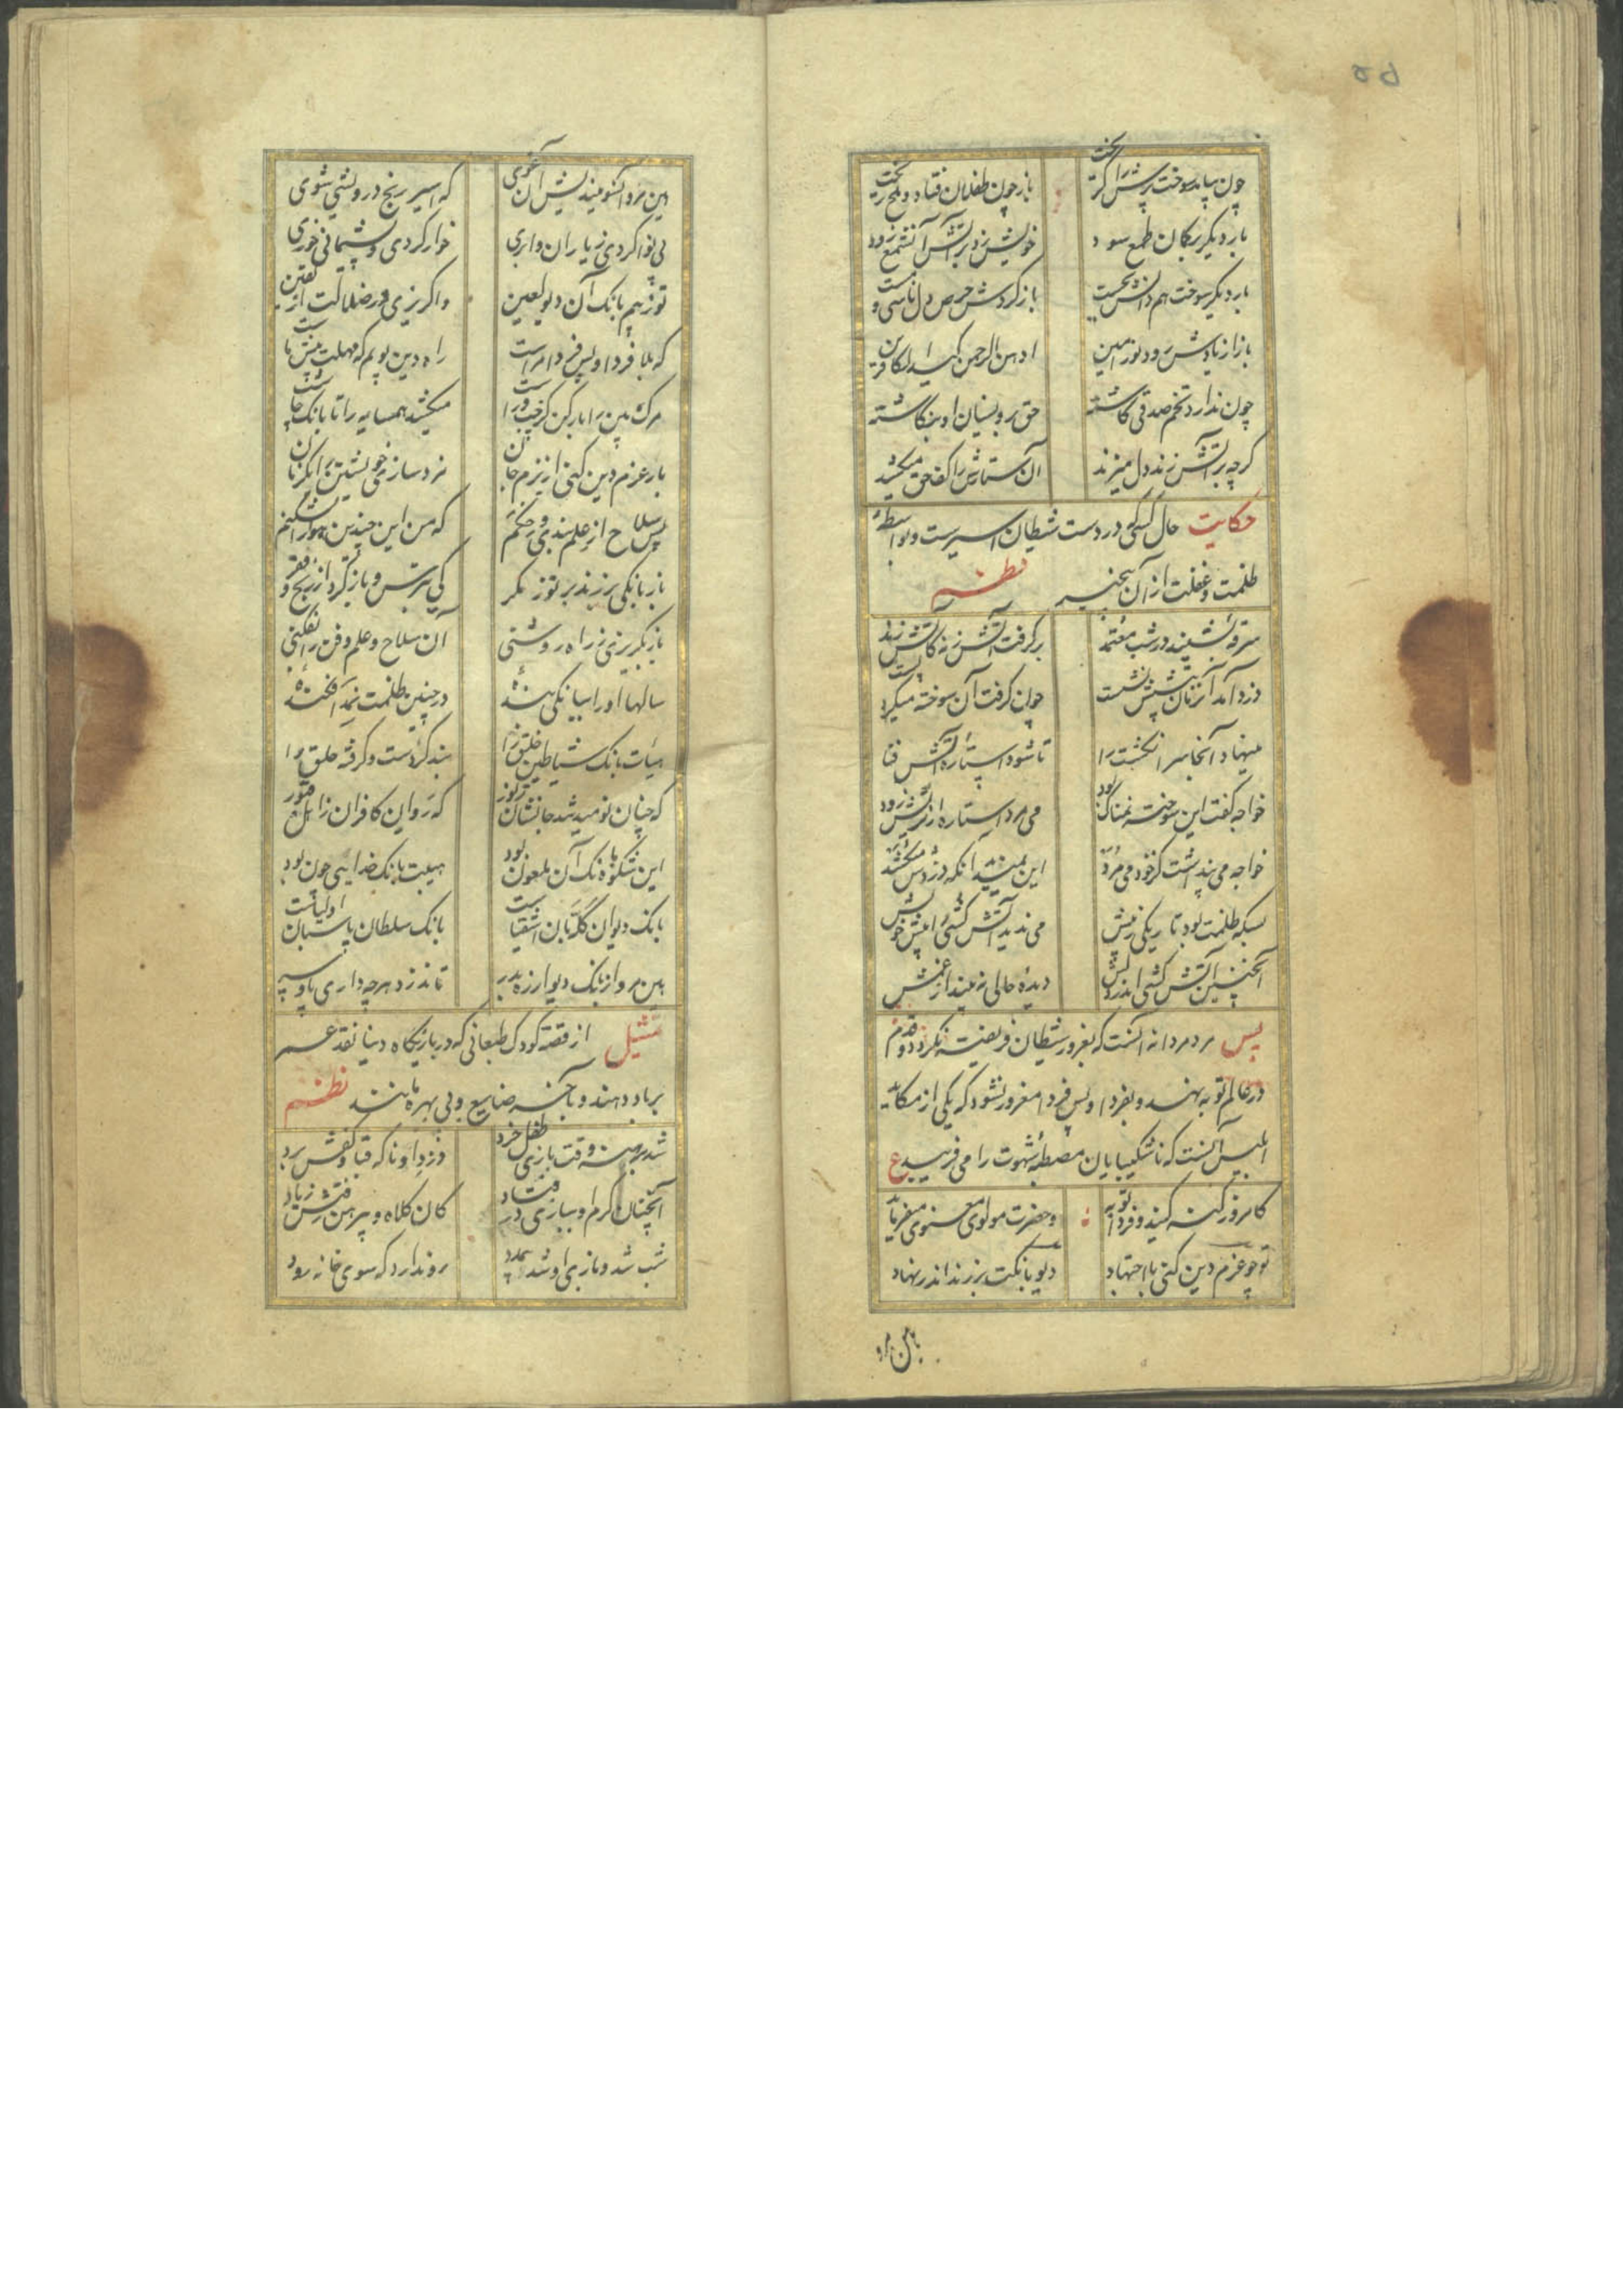 ۵۵
چون بیاید سوخت پرش را گریخت باز چون طفلان فتاد و ملح ریخت
بار دیگر بر گمان طمع سود خویش زد بر آتش آن شمع زود
بار دیگر سوخت هم واپس بجست باز کردش حرص دل ناسی و مست
باز از یادش رود توبه و انین اوهن الرحمن کید الکافرین
چون ندارد تخم صدقی کاشته حق برو نسیان او بگماشته
گرچه بر آتش زنه دل میزند آن ستارش را کف حق میکشد
حکایت حال کسی که در دست شیطان اسیرست و بواسطهٔ
ظلمت و غفلت از آن بیخبر نظم
سرقه بشنید در شب معتمد برگرفت آتش زنه کآتش زند
دزد آمد آن زمان پیشش نشست چون گرفت آن سوخته میکرد پست
مینهاد آنجا سر انگشت را تا شود استاره آتش فنا
خواجه گفت این سوخته نمناک بود می مرد استاره از تریش زود
خواجه می پنداشت کز خود می مرد این نمیدید آنکه دزدش میکشد
بسکه ظلمت بود تاریکی ز پیش می ندید آتش کشی را پیش خویش
آنچنین آتش کشی اندر دلش دیدهٔ حالی نه بیند از عمش
پس مرد مردانه آنست که بغرور شیطان فریفته نگردد و قدم
در عالم توبه بنهد و بفردا و پس فردا مغرور نشود که یکی از مکاید
ابلیس آنست که ناشکیبایان مصطبهٔ شهوت را می فریبد ع
کامروز گنه کنید و فردا توبه و حضرت مولوی معنوی میفرماید
تو چو عزم دین کنی با اجتهاد دیو بانگت بر زند اندر نهاد
هین مرو آنسو میندیش ای غوی که اسیر رنج و درویشی شوی
بی نوا گردی ز یاران وابری خوار گردی و پشیمانی خوری
تو ز بیم بانک آن دیو لعین واگریزی در ضلالت از یقین
که هلا فردا و پس فردا مراست راه دین پویم که مهلت پیش ماست
مرک بین را بار کن کز چپ و راست میکشد همسایه را تا بانگ خاست
بار عزم دین کنی از بیم جان مرد سازی خویشتن را یک زمان
پس سلاح از علم بندی و حکم که من این چندین هوا را بشکنم
باز بانگی بر زند بر تو ز مکر کی بترس و بازگرد از رنج و فقر
باز بگریزی ز راه روشنی آن سلاح و علم و فن را بفکنی
سالها او را ببانگی بندهٔ در چنین ظلمت نمد افکندهٔ
هیات بانک شیاطین خلق را بند کردست و گرفته حلق را
که چنان نومید شد جانشان ز نور که روان کافران ز اهل قبور
این شکوه بانک آن ملعون بود هیبت بانک خدایی چون بود
بانک دیوان گله بان اشقیاست بانک سلطان پاسبان اولیاست
هین مرو از بانک دیو از ره بدر تا ندزدد هرچه داری پا و سر
تمثیل از قصه کودک طبعانی که در بازیگاه دنیا نقد عمر
بر باد دهند و بآخر ضایع و بی بهره مانند نظم
شد برهنه وقت بازی طفل خرد دزد او ناگه قبا و کفش برد
آنچنان گرم او ببازی در فتاد کان کلاه و پیرهن رفتش ز یاد
شب شد و بازی او شد بی مدد رو ندارد که سوی خانه رود